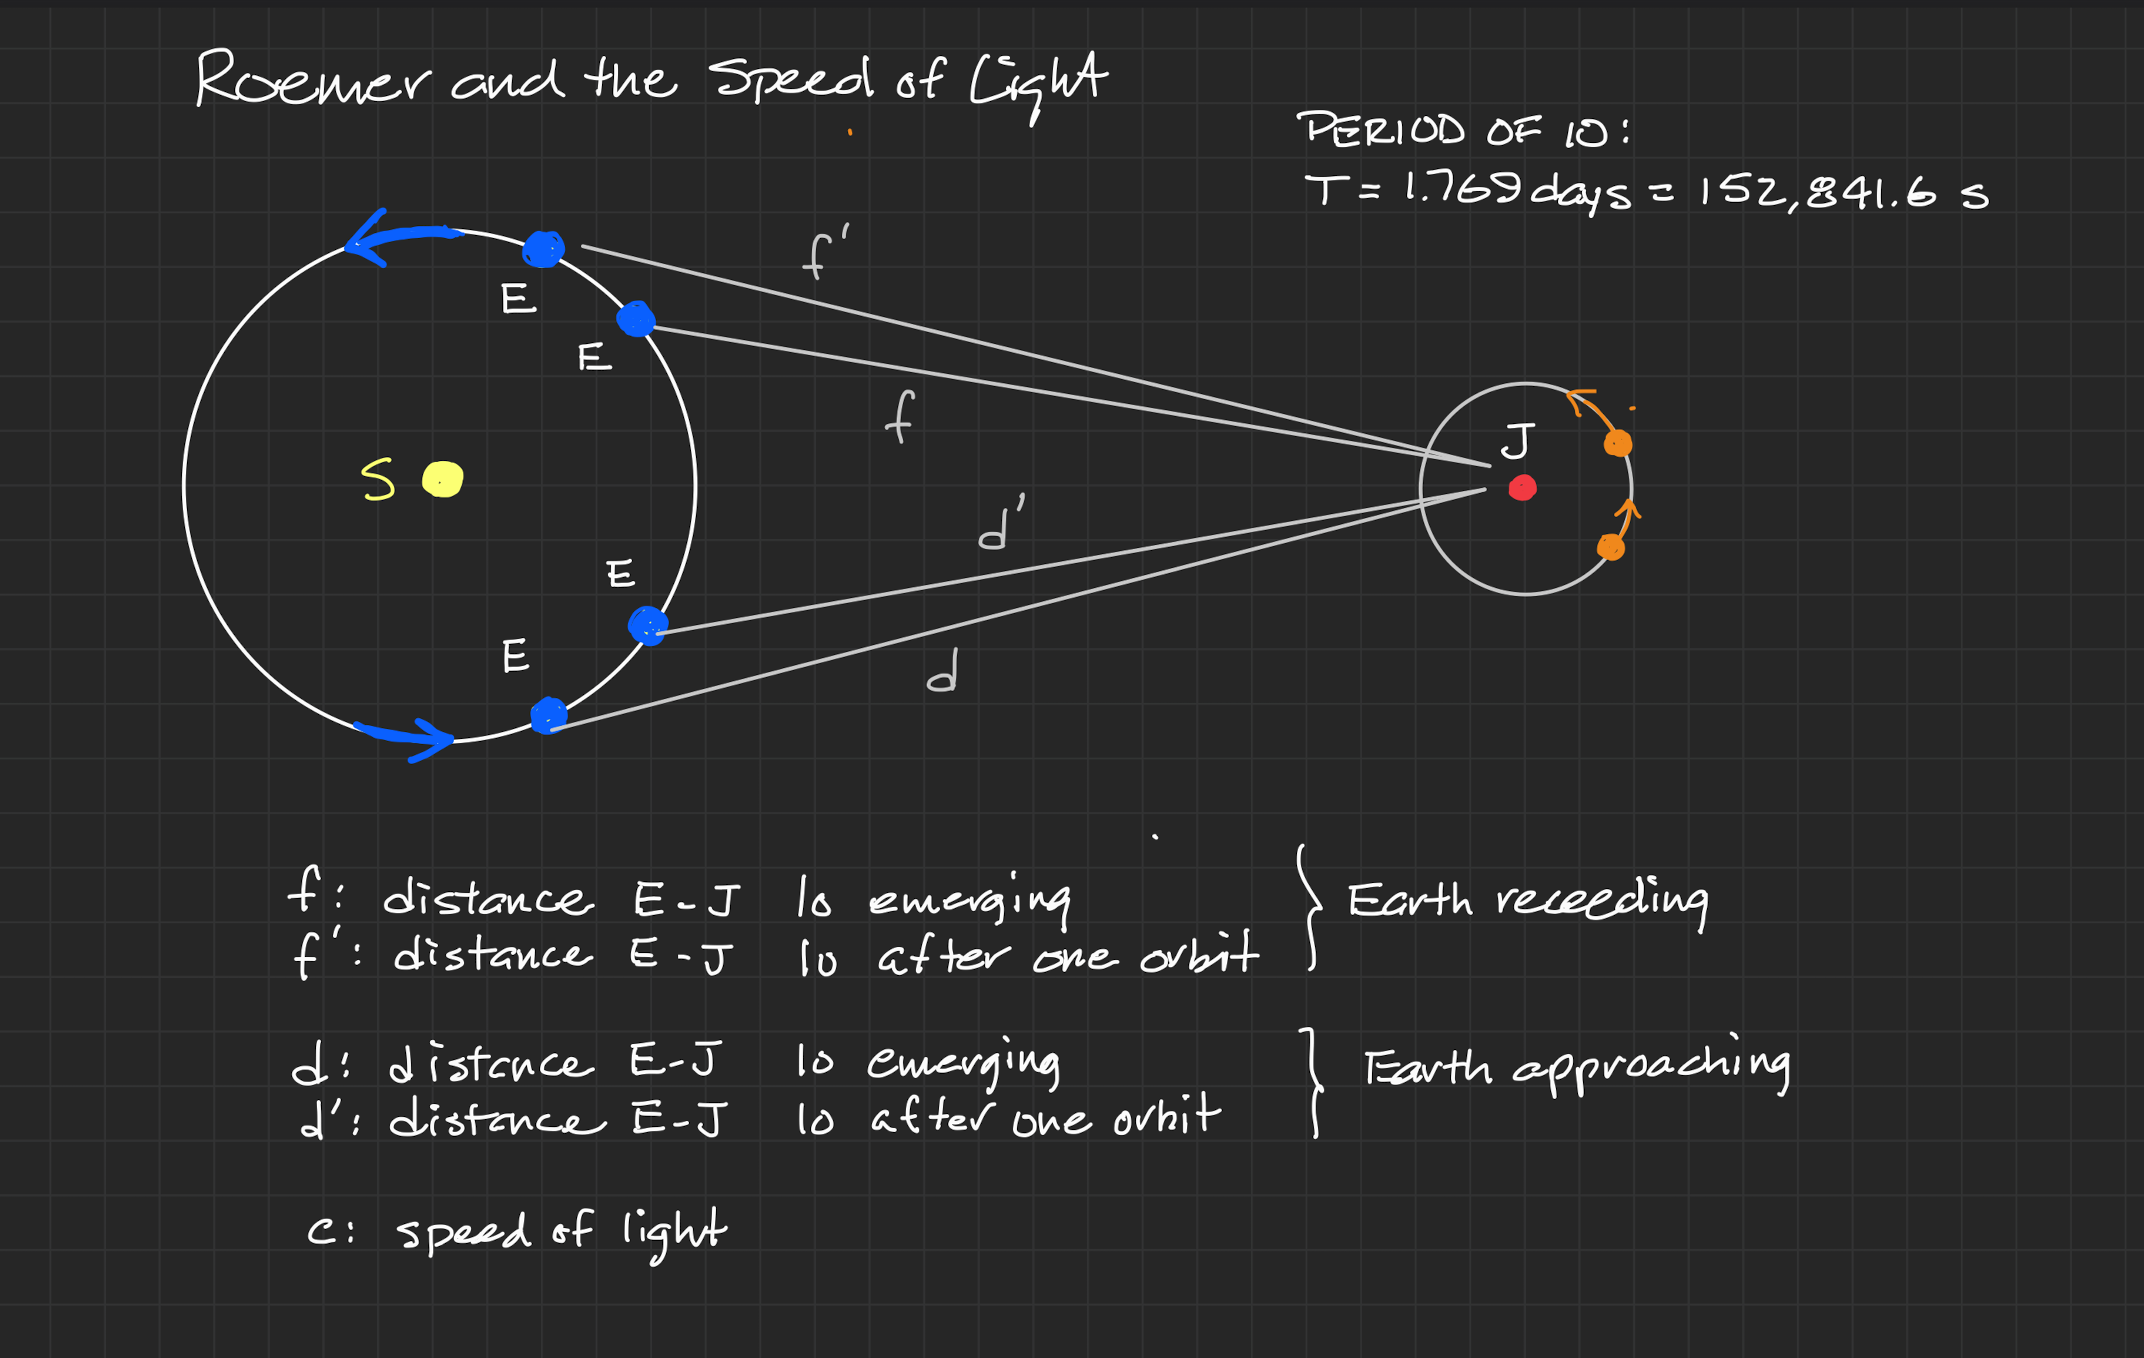 Roemer and the Speed of Light
PERIOD OF IO:
T = 1.769 days = 152,841.6 s
f'
E
E
f
J
S
d'
E
E
d
f: distance E-J Io emerging
f': distance E-J Io after one orbit
Earth receeding
d: distance E-J Io emerging
d': distance E-J Io after one orbit
Earth approaching
c: speed of light